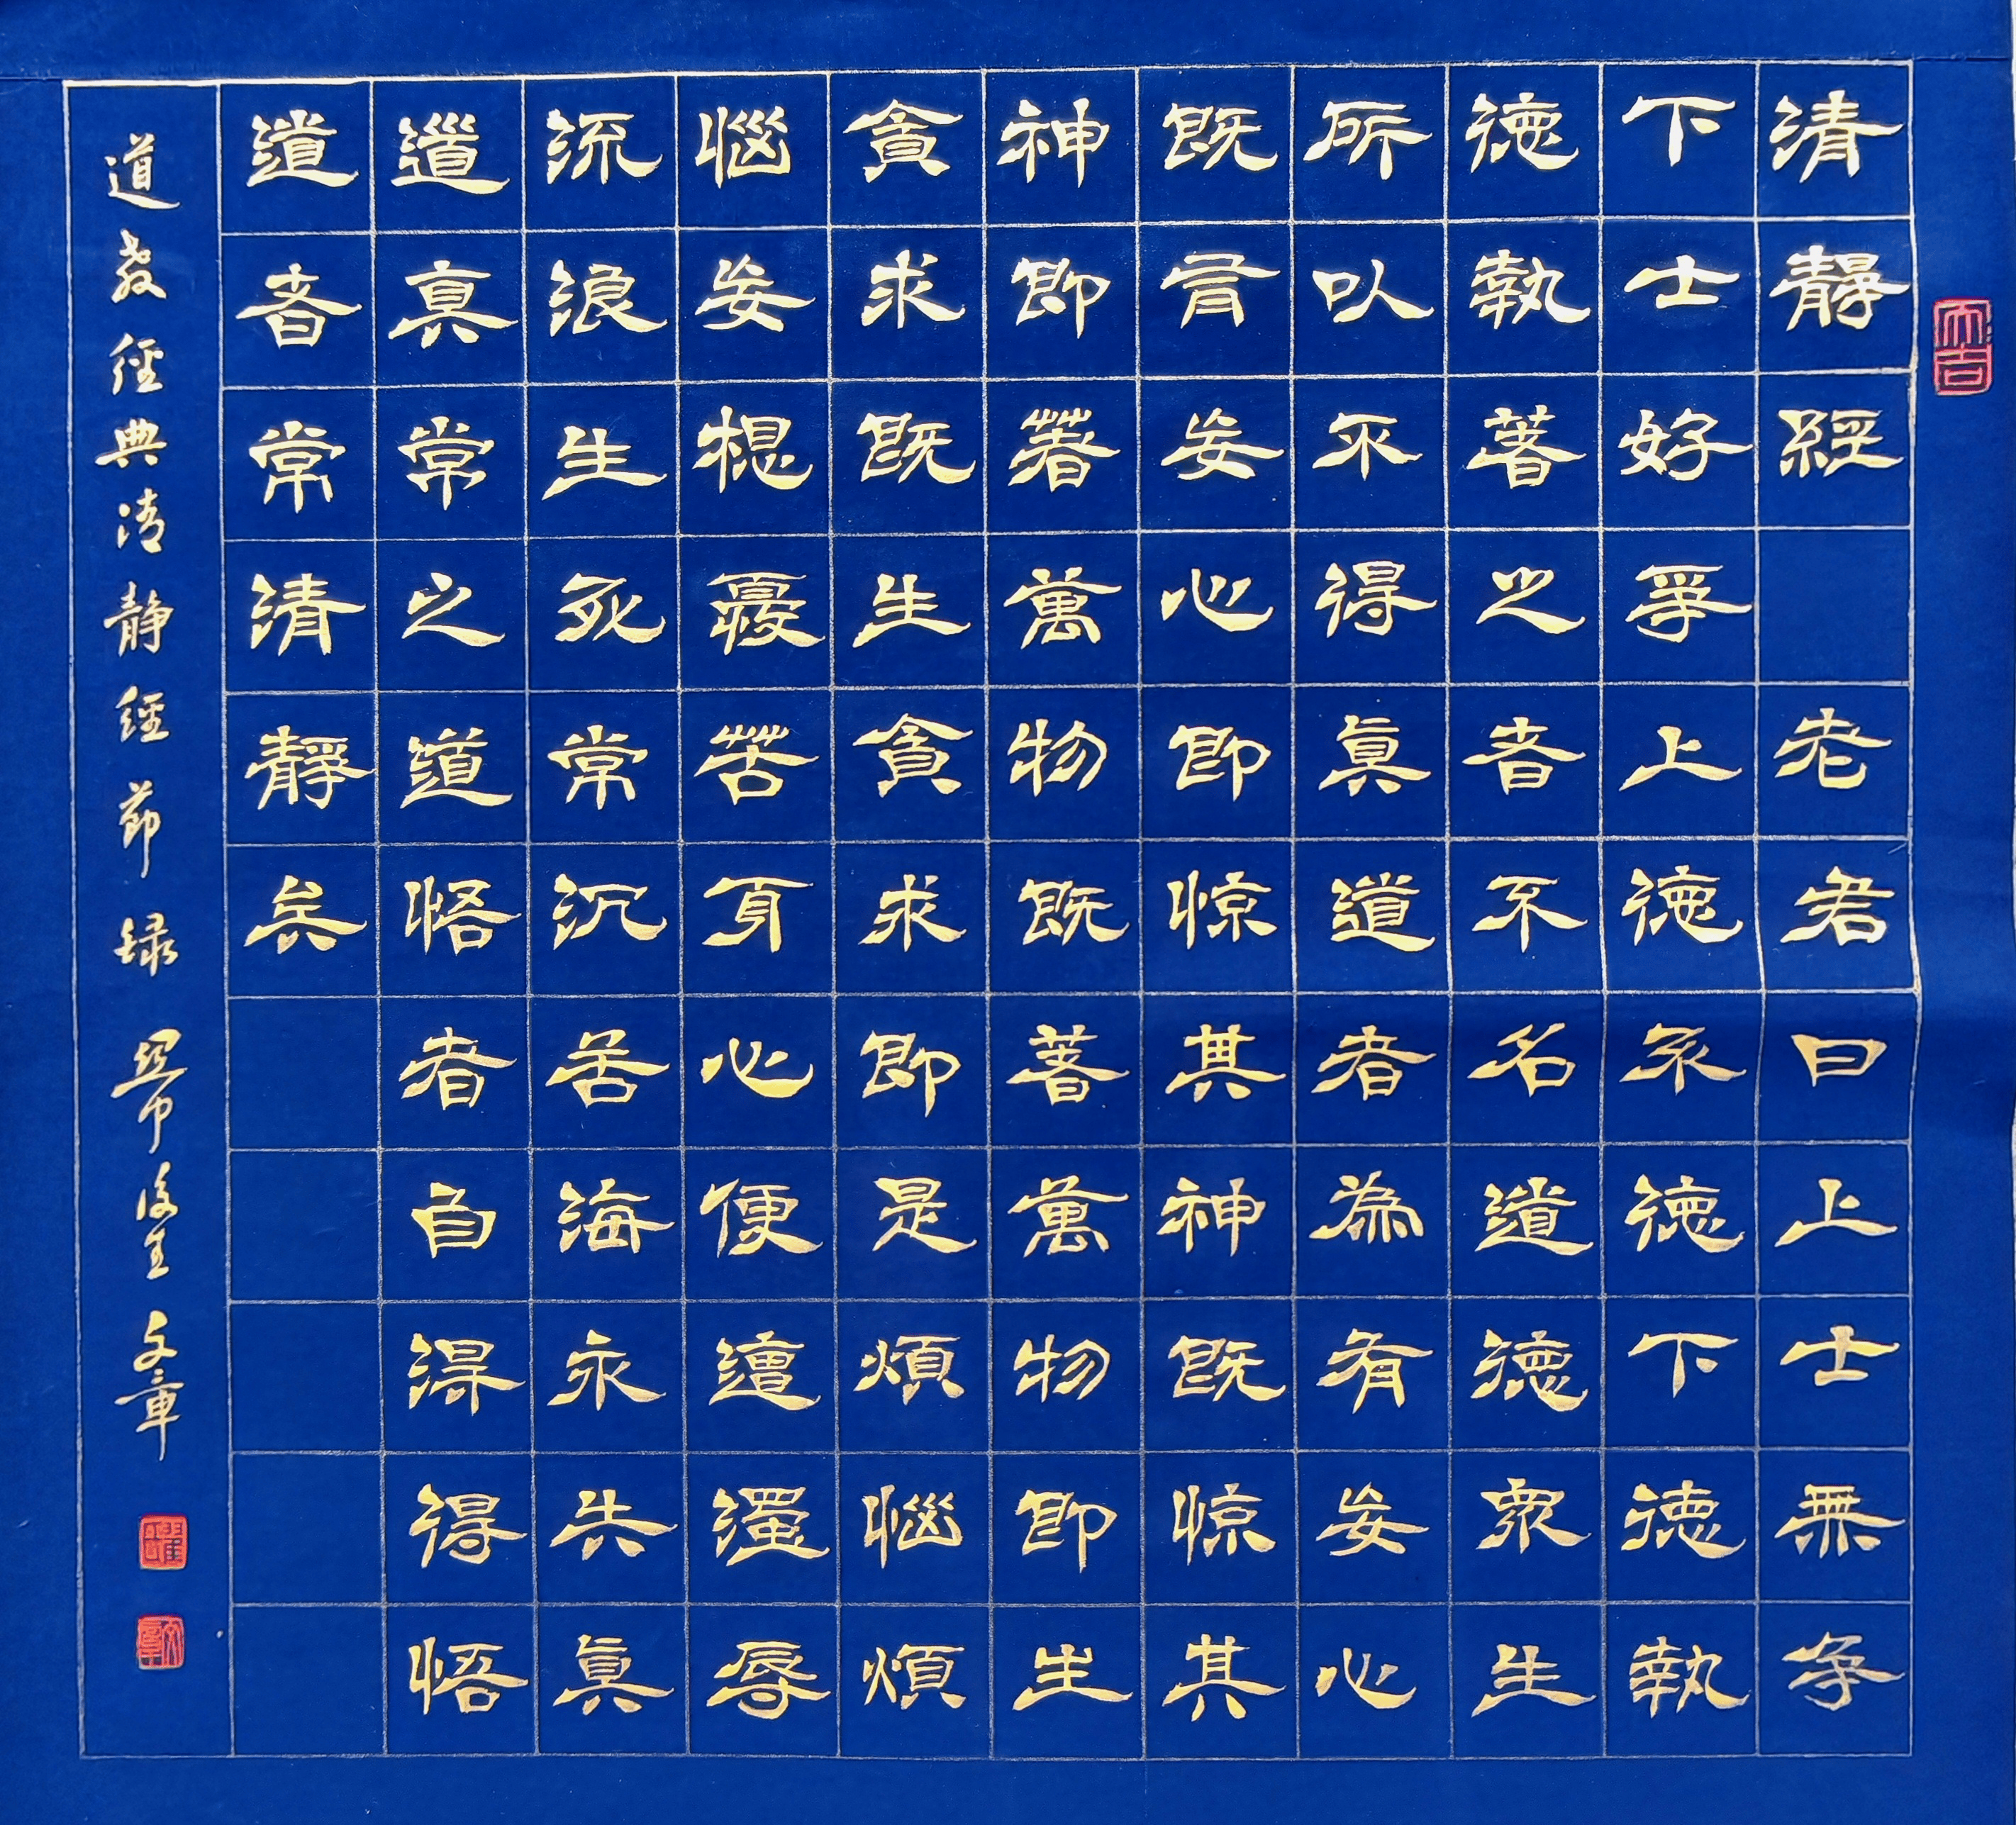 清靜經 老君曰上士無爭
下士好爭上德不德下德執
德執著之者不名道德眾生
所以不得真道者為有妄心
既有妄心即惊其神既惊其
神即著萬物既著萬物即生
貪求既生貪求即是煩惱煩
惱妄想憂苦身心便遭濁辱
流浪生死常沉苦海永失真
道真常之道悟者自得得悟
道者常清靜矣
道教經典清靜經節録 後生 文章
大吉
文章